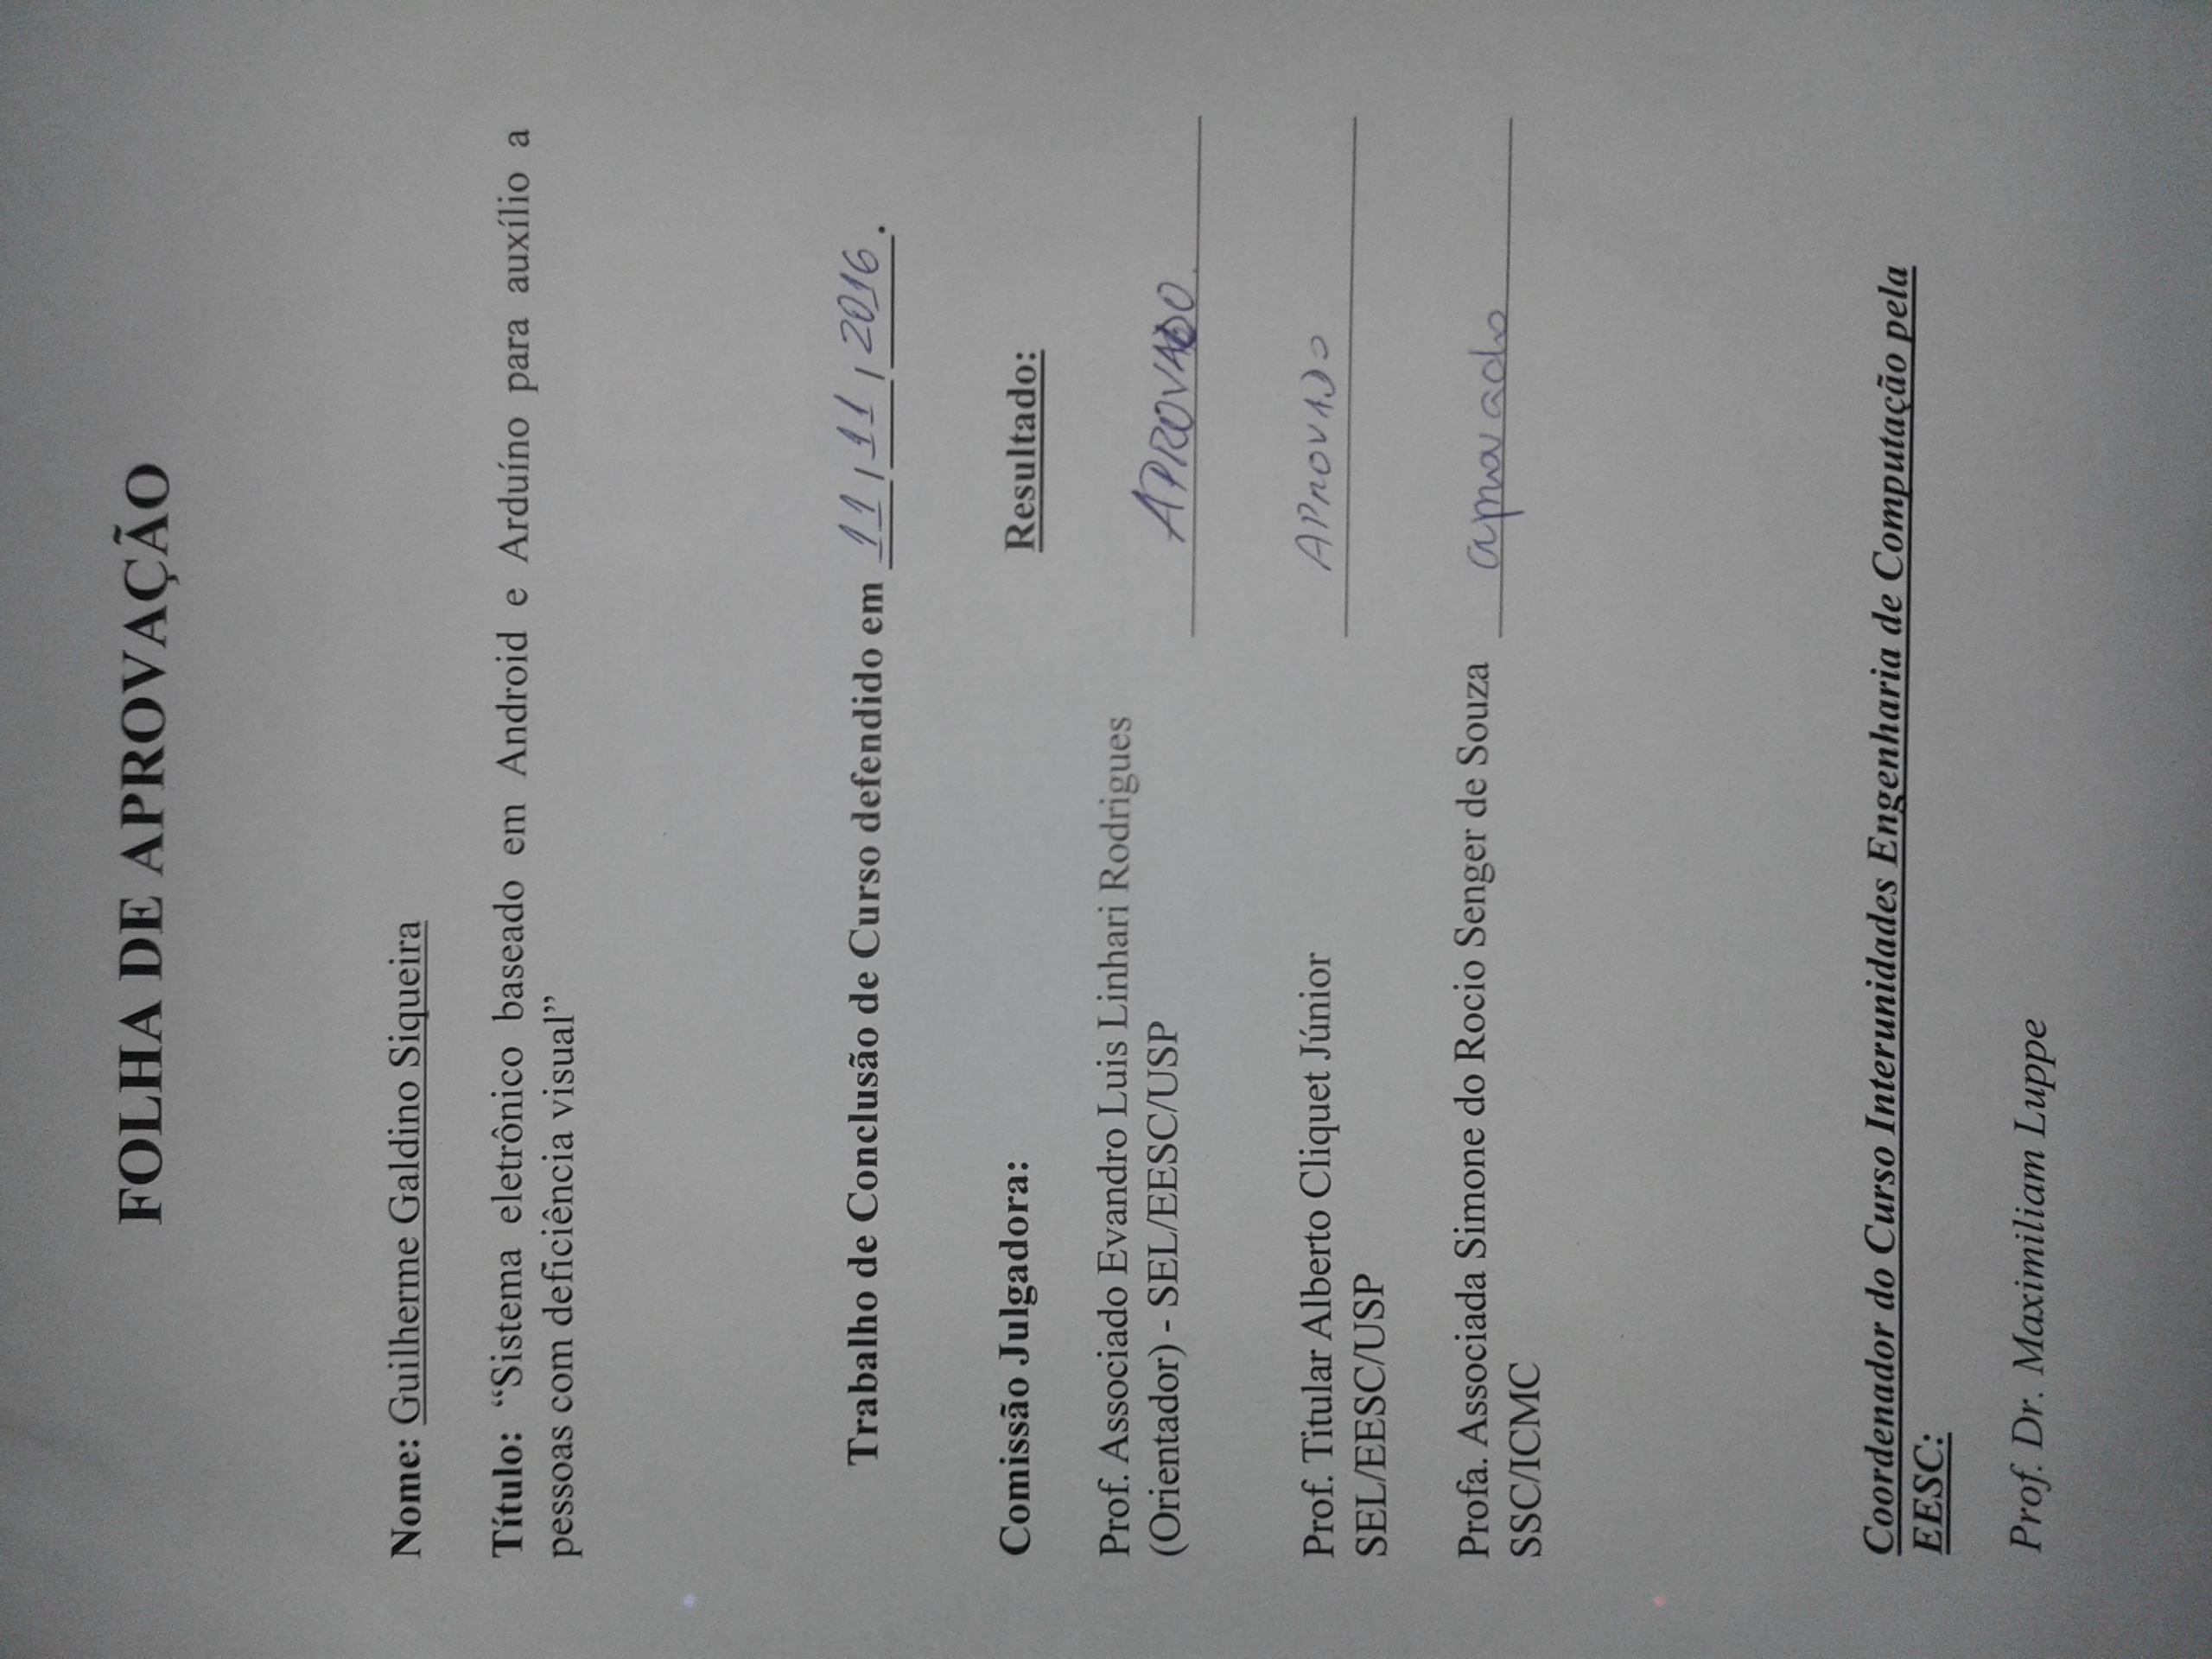 FOLHA DE APROVAÇÃO
Nome: Guilherme Galdino Siqueira
Título: “Sistema eletrônico baseado em Android e Arduíno para auxílio a
pessoas com deficiência visual”
Trabalho de Conclusão de Curso defendido em 11/11/2016.
Comissão Julgadora:
Resultado:
Prof. Associado Evandro Luis Linhari Rodrigues
(Orientador) - SEL/EESC/USP
APROVADO.
Prof. Titular Alberto Cliquet Júnior
APROVADO
SEL/EESC/USP
Profa. Associada Simone do Rocio Senger de Souza
aprovado
SSC/ICMC
Coordenador do Curso Interunidades Engenharia de Computação pela
EESC:
Prof. Dr. Maximiliam Luppe